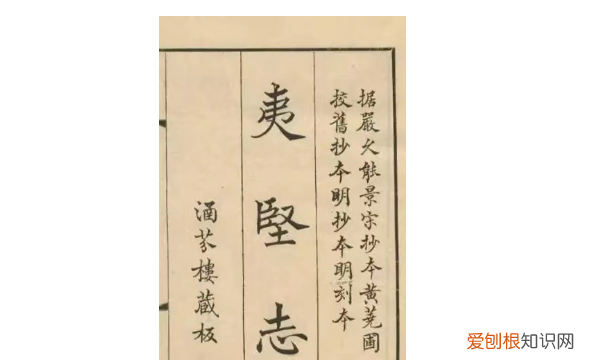 据嚴久能景宋抄本黄蕘圃
挍舊抄本明抄本明刻本
夷堅志
涵芬樓藏板
爱刨根知识网